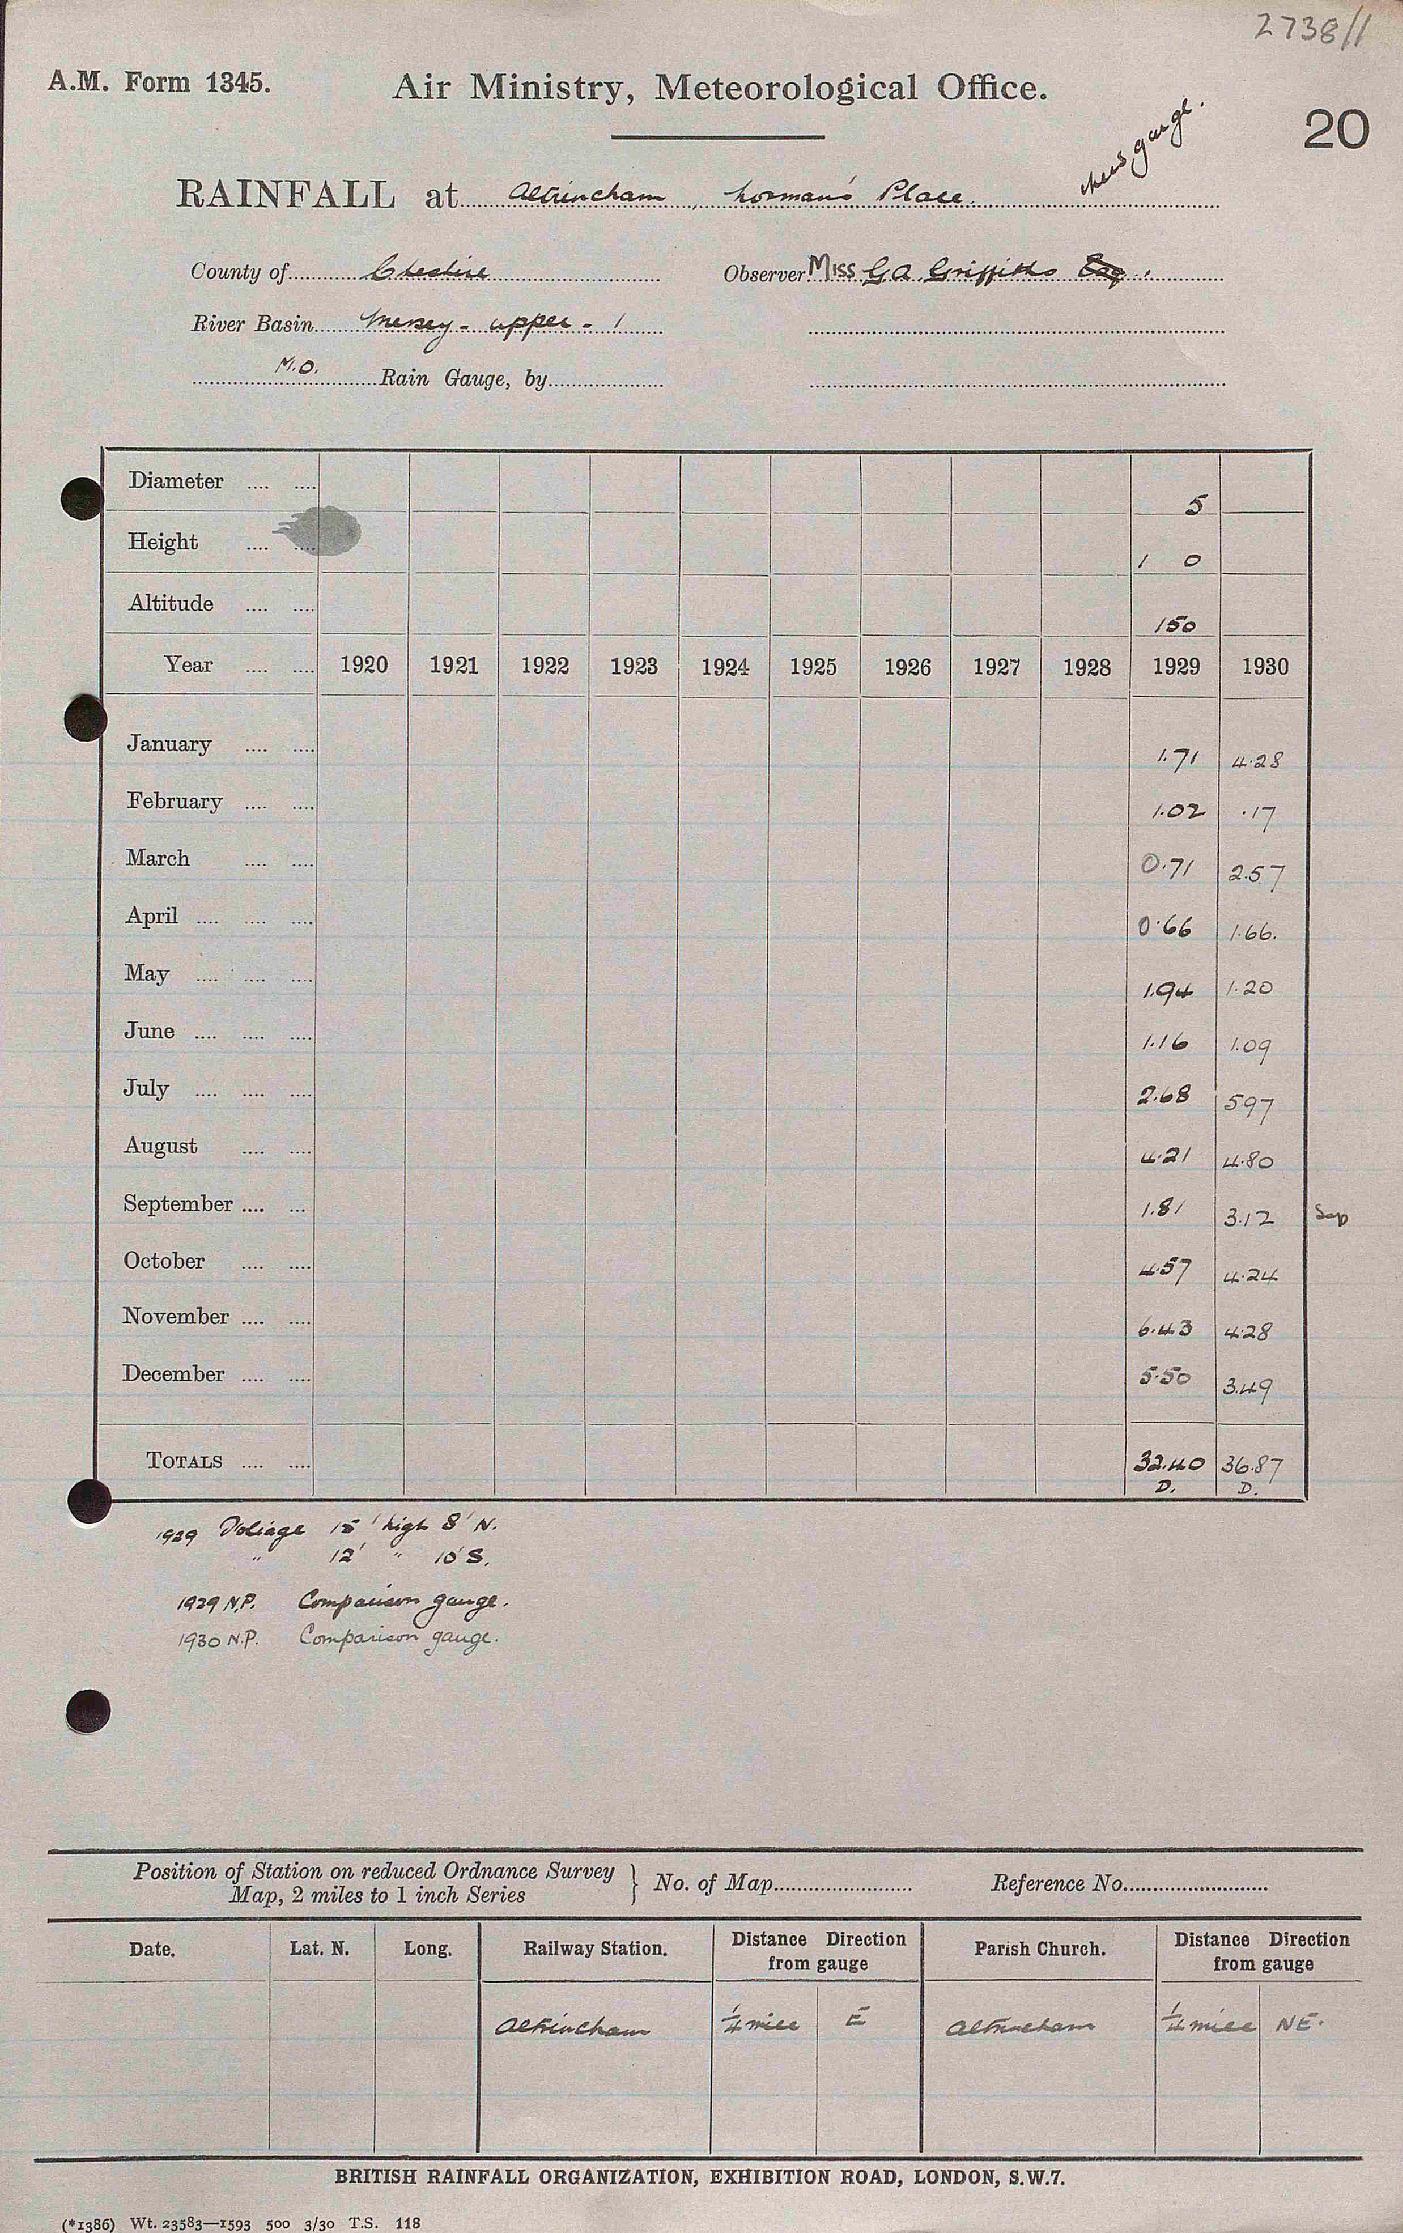 2738/1
A.M. Form 1345. Air Ministry, Meteorological Office.
20
gauge.
RAINFALL at Altrincham, Norman's Place.
County of Cheshire Observer Miss G A Griffiths Esq.
River Basin Mersey - upper - 1
M.O. Rain Gauge, by
Diameter 5
Height 1 0
Altitude 150
Year 1920 1921 1922 1923 1924 1925 1926 1927 1928 1929 1930
January 1.71 4.28
February 1.02 .17
March 0.71 2.57
April 0.66 1.66.
May 1.94 1.20
June 1.16 1.09
July 2.68 5.97
August 4.21 4.80
September 1.81 3.12 Sep
October 4.57 4.24
November 6.43 4.28
December 5.50 3.49
TOTALS 32.40 36.87
D. D.
1929 Foliage 15' high 8' N.
" 12' " 10' S.
1929 N.P. Comparison gauge.
1930 N.P. Comparison gauge.
Position of Station on reduced Ordnance Survey
Map, 2 miles to 1 inch Series } No. of Map Reference No.
Date. Lat. N. Long. Railway Station. Distance Direction from gauge Parish Church. Distance Direction from gauge
Altrincham 1/4 mile E Altrincham 1/4 mile NE.
BRITISH RAINFALL ORGANIZATION, EXHIBITION ROAD, LONDON, S.W.7.
(*1386) Wt. 23583—1593 500 3/30 T.S. 118